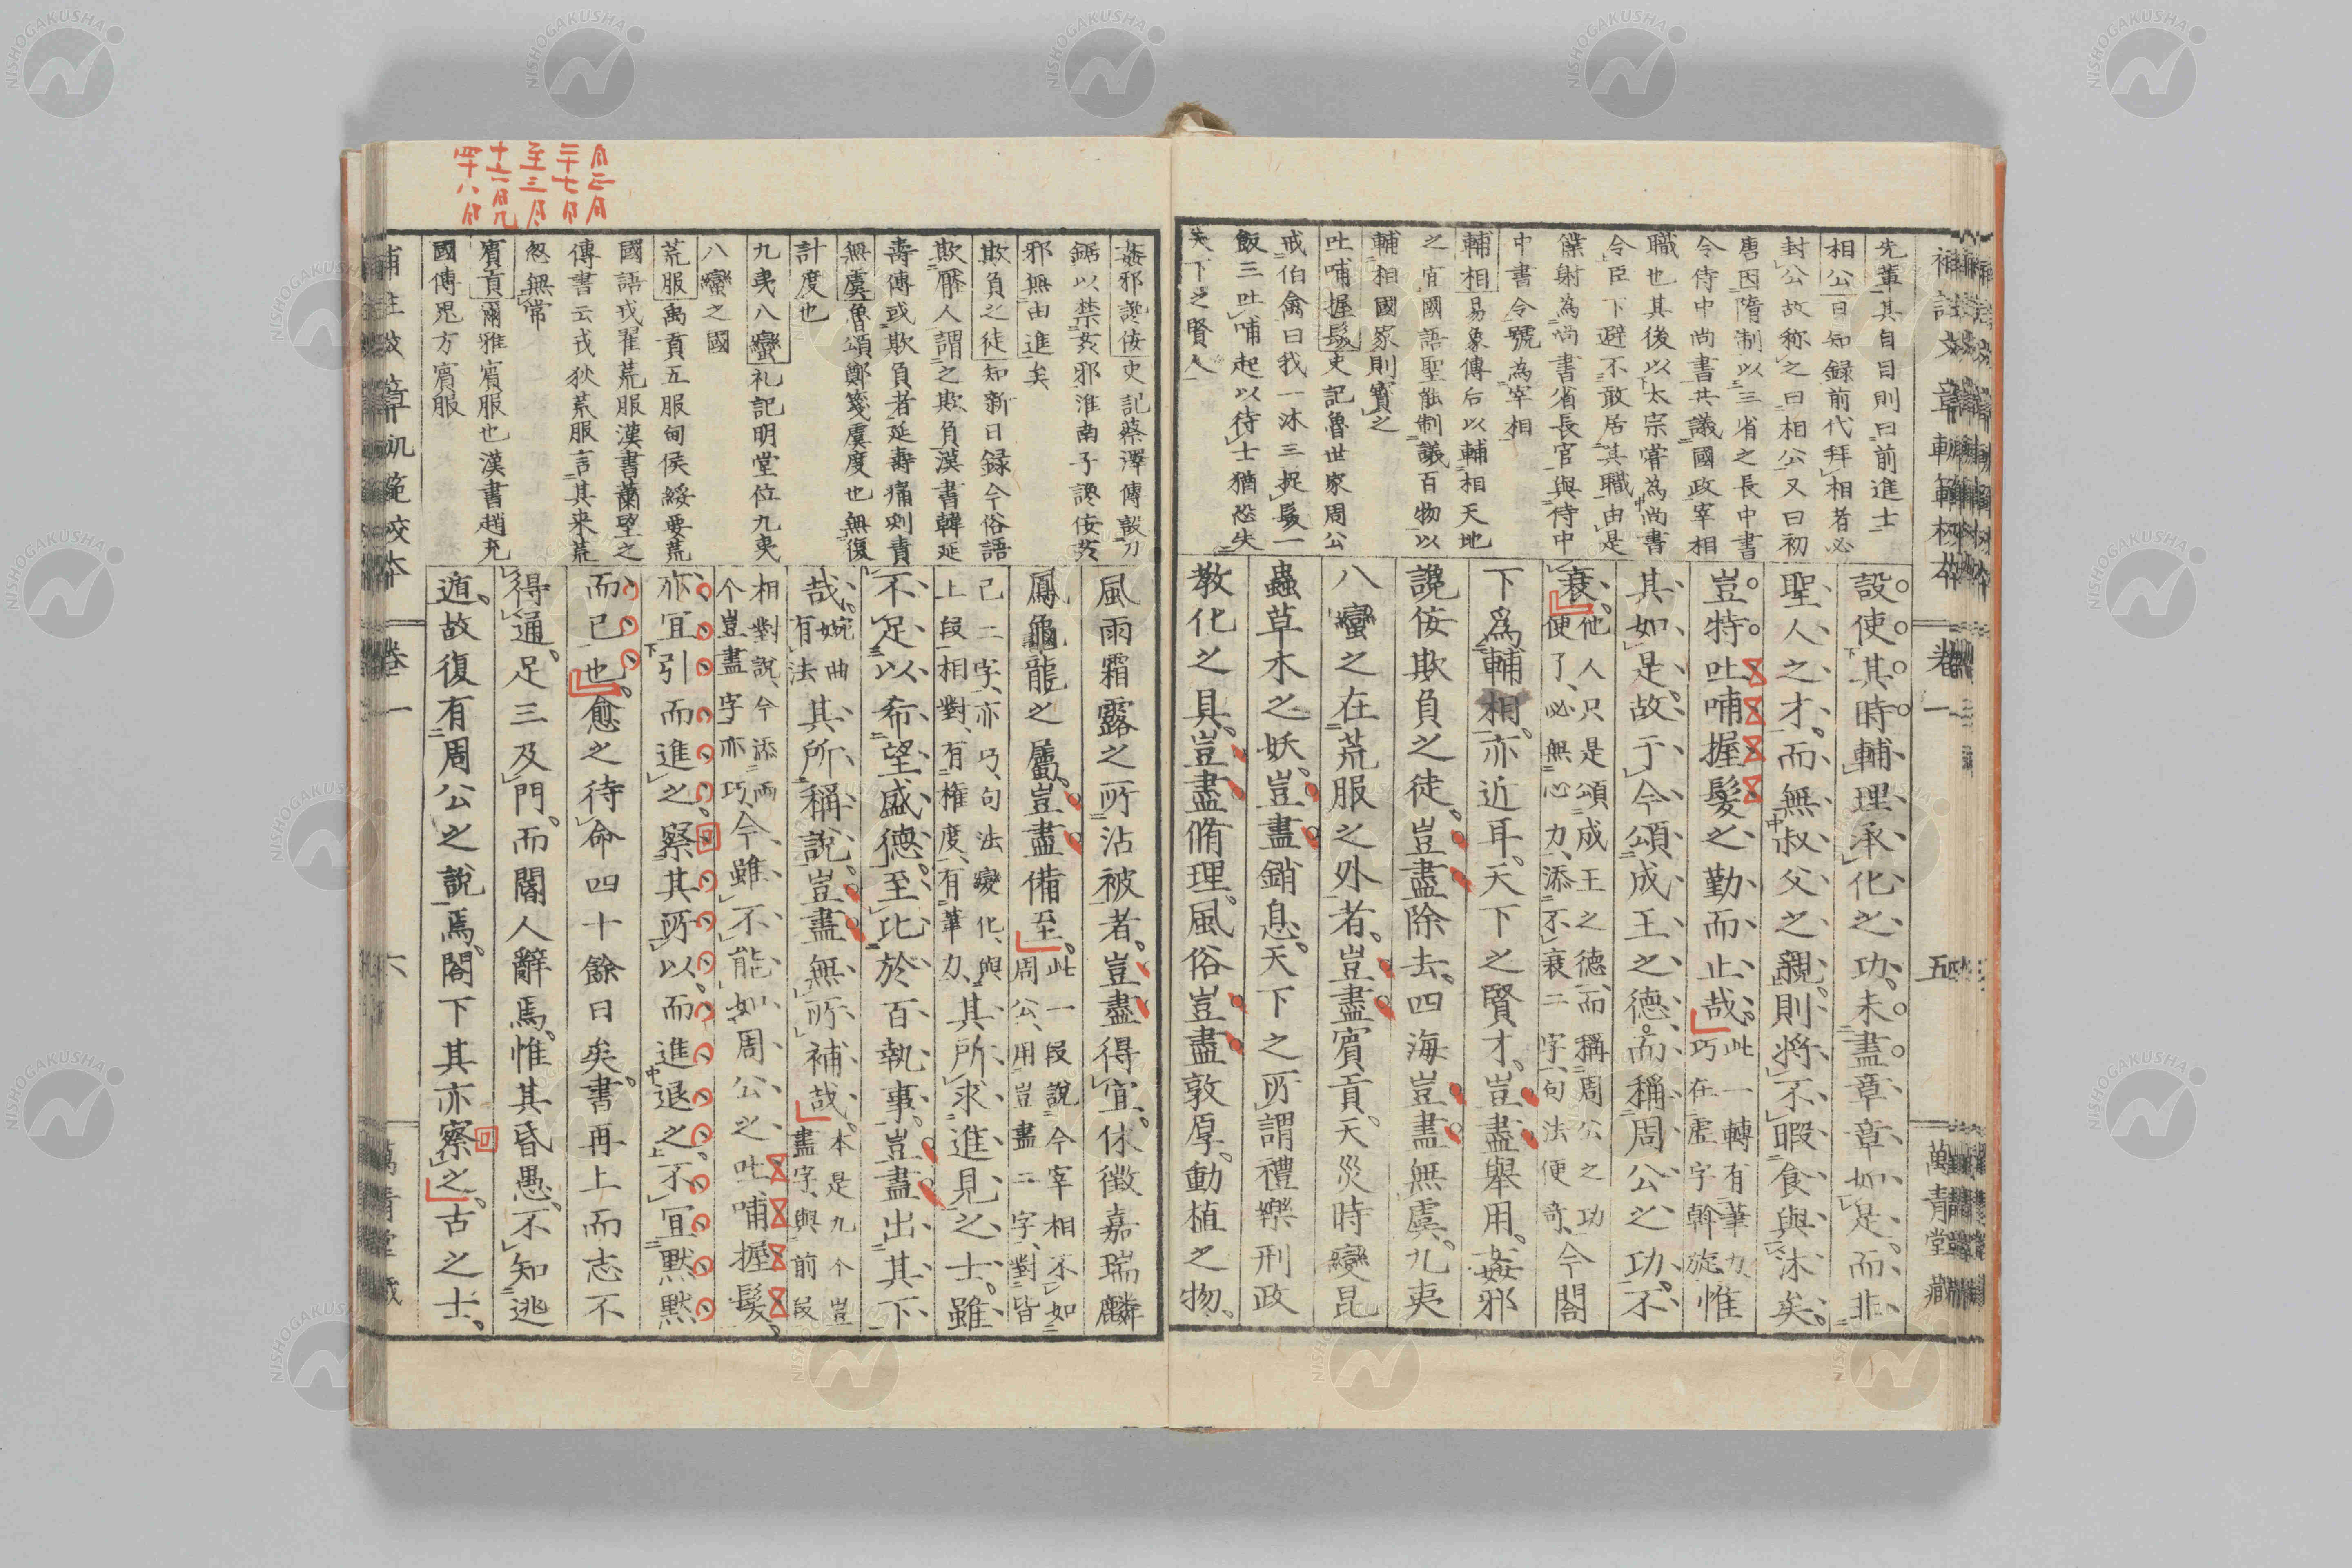 補註文章軌範校本
卷一
五
萬青堂藏
先輩其自目則曰前進士
相公日知録前代拜相者必
封公故称之曰相公又曰初
唐因隋制以三省之長中書
令侍中尚書共議國政宰相
職也其後以太宗嘗為尚書
令臣下避不敢居其職由是
僕射為尚書省長官與侍中
中書令號為宰相
輔相易象傳后以輔相天地
之宜國語聖能制議百物以
輔相國家則寶之
吐哺握髮史記魯世家周公
戒伯禽曰我一沐三捉髮一
飯三吐哺起以待士猶恐失
天下之賢人
設使其時輔理承化之功未盡章章如是而非
聖人之才而無叔父之親則將不暇食與沐矣
豈特吐哺握髮之勤而止哉此一轉有筆力巧在虛字斡旋惟
其如是故于今頌成王之德而稱周公之功不
衰他人只是頌成王之德而稱周公之功便了必無心力添不衰二字句法便奇今閤
下爲輔相亦近耳天下之賢才豈盡舉用姦邪
讒佞欺負之徒豈盡除去四海豈盡無虞九夷
八蠻之在荒服之外者豈盡賓貢天災時變昆
蟲草木之妖豈盡銷息天下之所謂禮樂刑政
教化之具豈盡脩理風俗豈盡敦厚動植之物
姦邪讒佞史記蔡澤傳設刀
鋸以禁姦邪淮南子讒佞姦
邪無由進矣
欺負之徒知新日録今俗語
欺壓人謂之欺負漢書韓延
壽傳或欺負者延壽痛刻責
無虞魯頌鄭箋虞度也無復
計度也
九夷八蠻礼記明堂位九夷
八蠻之國
荒服禹貢五服甸侯綏要荒
國語戎翟荒服漢書蕭望之
傳書云戎狄荒服言其来荒
忽無常
賓貢爾雅賓服也漢書趙充
國傳鬼方賓服
風雨霜露之所沾被者豈盡得宜休徵嘉瑞麟
鳳龜龍之屬豈盡備至此一段說今宰相不如周公用豈盡二字對皆
已二字亦巧句法變化與上段相對有權度有筆力其所求進見之士雖
不足以希望盛德至比於百執事豈盡出其下
哉婉曲有法其所稱說豈盡無所補哉本是九个豈盡字與前段
相對說今添兩个豈盡字亦巧今雖不能如周公之吐哺握髮
亦宜引而進之察其所以而進退之不宜默默
而已也愈之待命四十餘日矣書再上而志不
得通足三及門而閽人辭焉惟其昏愚不知逃
遁故復有周公之說焉閤下其亦察之古之士
卷一
六
自二月
二十七日
至三月
十六日凡
四十八日